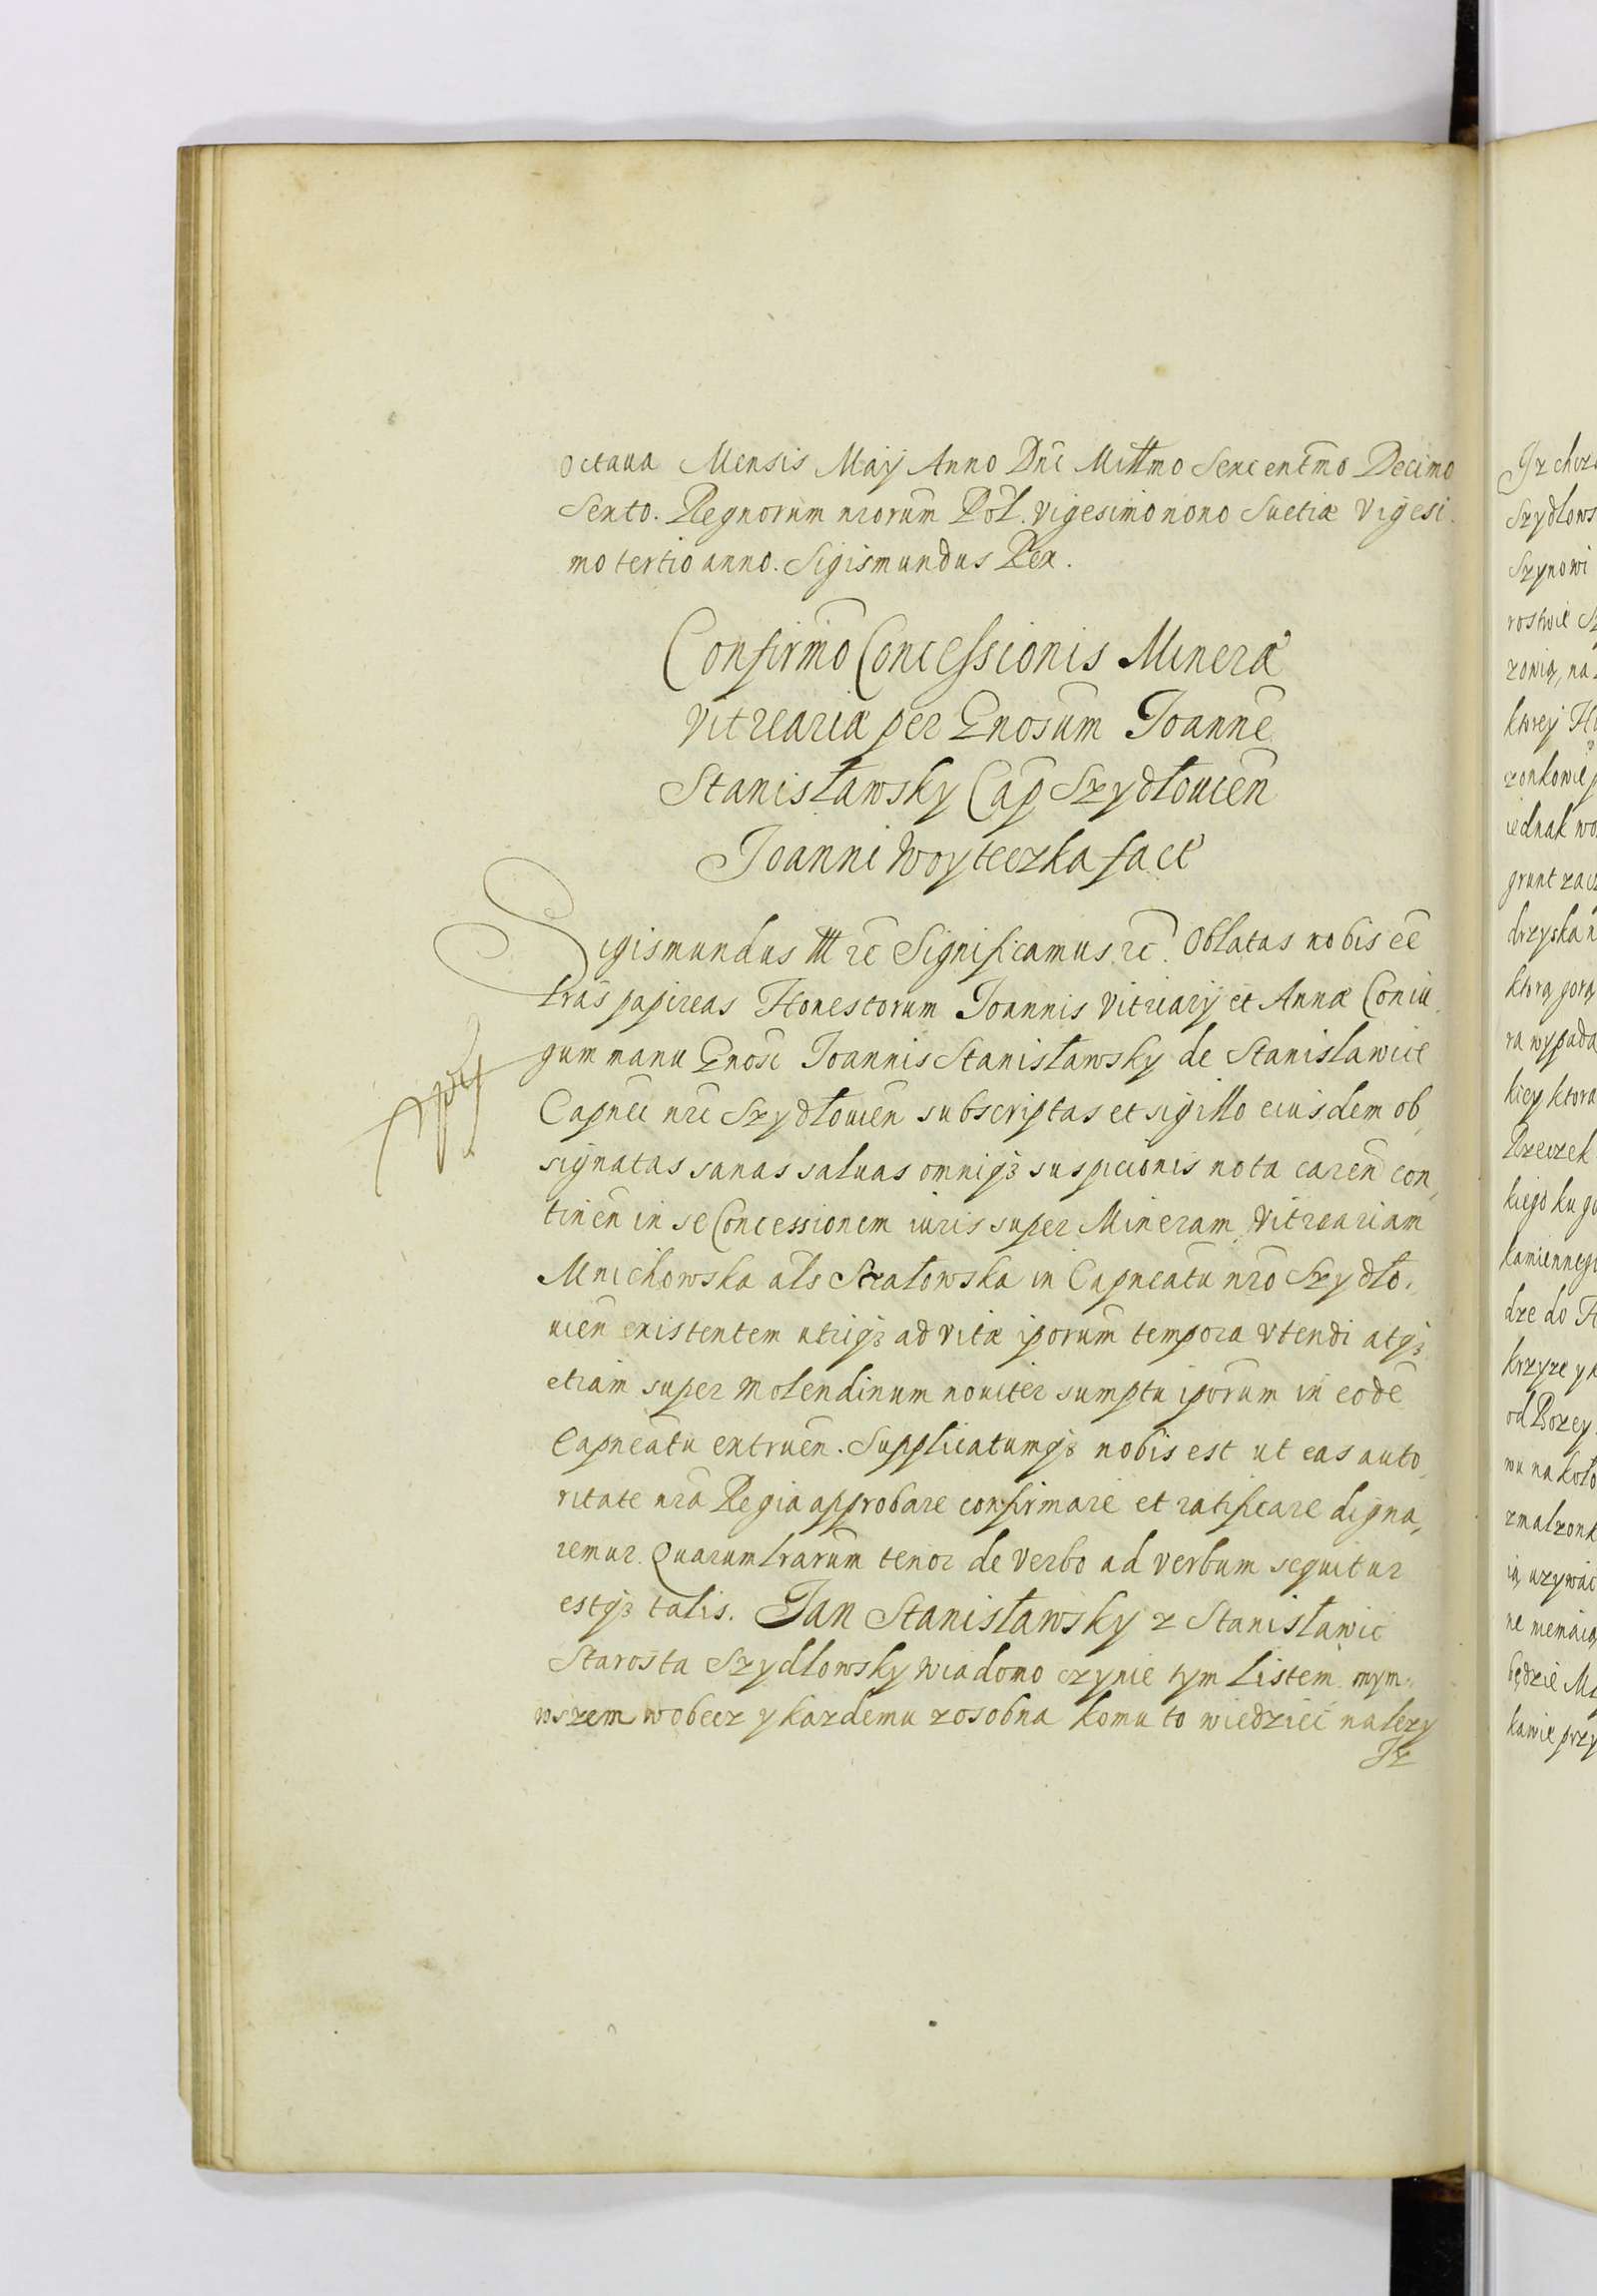 octaua Mensis Maÿ Anno Dnĩ Millmo Sexcentmõ Decimo
Sexto. Regnorum nrorum Pol. vigesimo nono Suetiæ Vigesi.
mo tertio anno. Sigismundus Rex.
Confirmõ Concessionis Mineræ
Vitreariæ per Gnosum Joannẽ
Stanisławsky Cap Szydłouien
Joanni Woyteczka fact
Sigismundus III rc Significamus rc. Oblatas nobis eẽ
lras papireas Honestorum Joannis Vitriarÿ et Annæ Coniu,
gum manu Gnosi Joannis Stanisławsky de Stanislawice
Capnei nri Szydłouien subscriptas et sigillo eiusdem ob,
signatas sanas saluas omniqз suspicionis nota caren con,
tinen in se Concessionem iuris super Mineram Vitreariam
Mnichowska als Szałowska in Capneatu nro Szydło,
uien existentem utriqз ad vitæ iporum tempora vtendi atqз
etiam super Molendinum nouiter sumptu iporum in eodẽ
Capneatu extruen. Supplicatumqз nobis est ut eas auto,
ritate nra Regia approbare confirmare et ratificare digna,
remur. Quarum lrarum tenor de verbo ad verbum sequitur
estqз talis. Jan Stanisławsky z Stanisławic
Starosta Szydlowsky wiadomo czynie tym listem mym.
wszem wobecz y kazdemu zosobna komu to wiedzieć nalezy
Jz
Szydlows
Szynowi
zowią, na
iednak wo
grunt zacz
ktorą gorą
ra wypada
kiey ktora
kiego ku go
kamiennego
dze do H
krzyze y
od Bozey
zmalzonk
będzie M
kawie przy